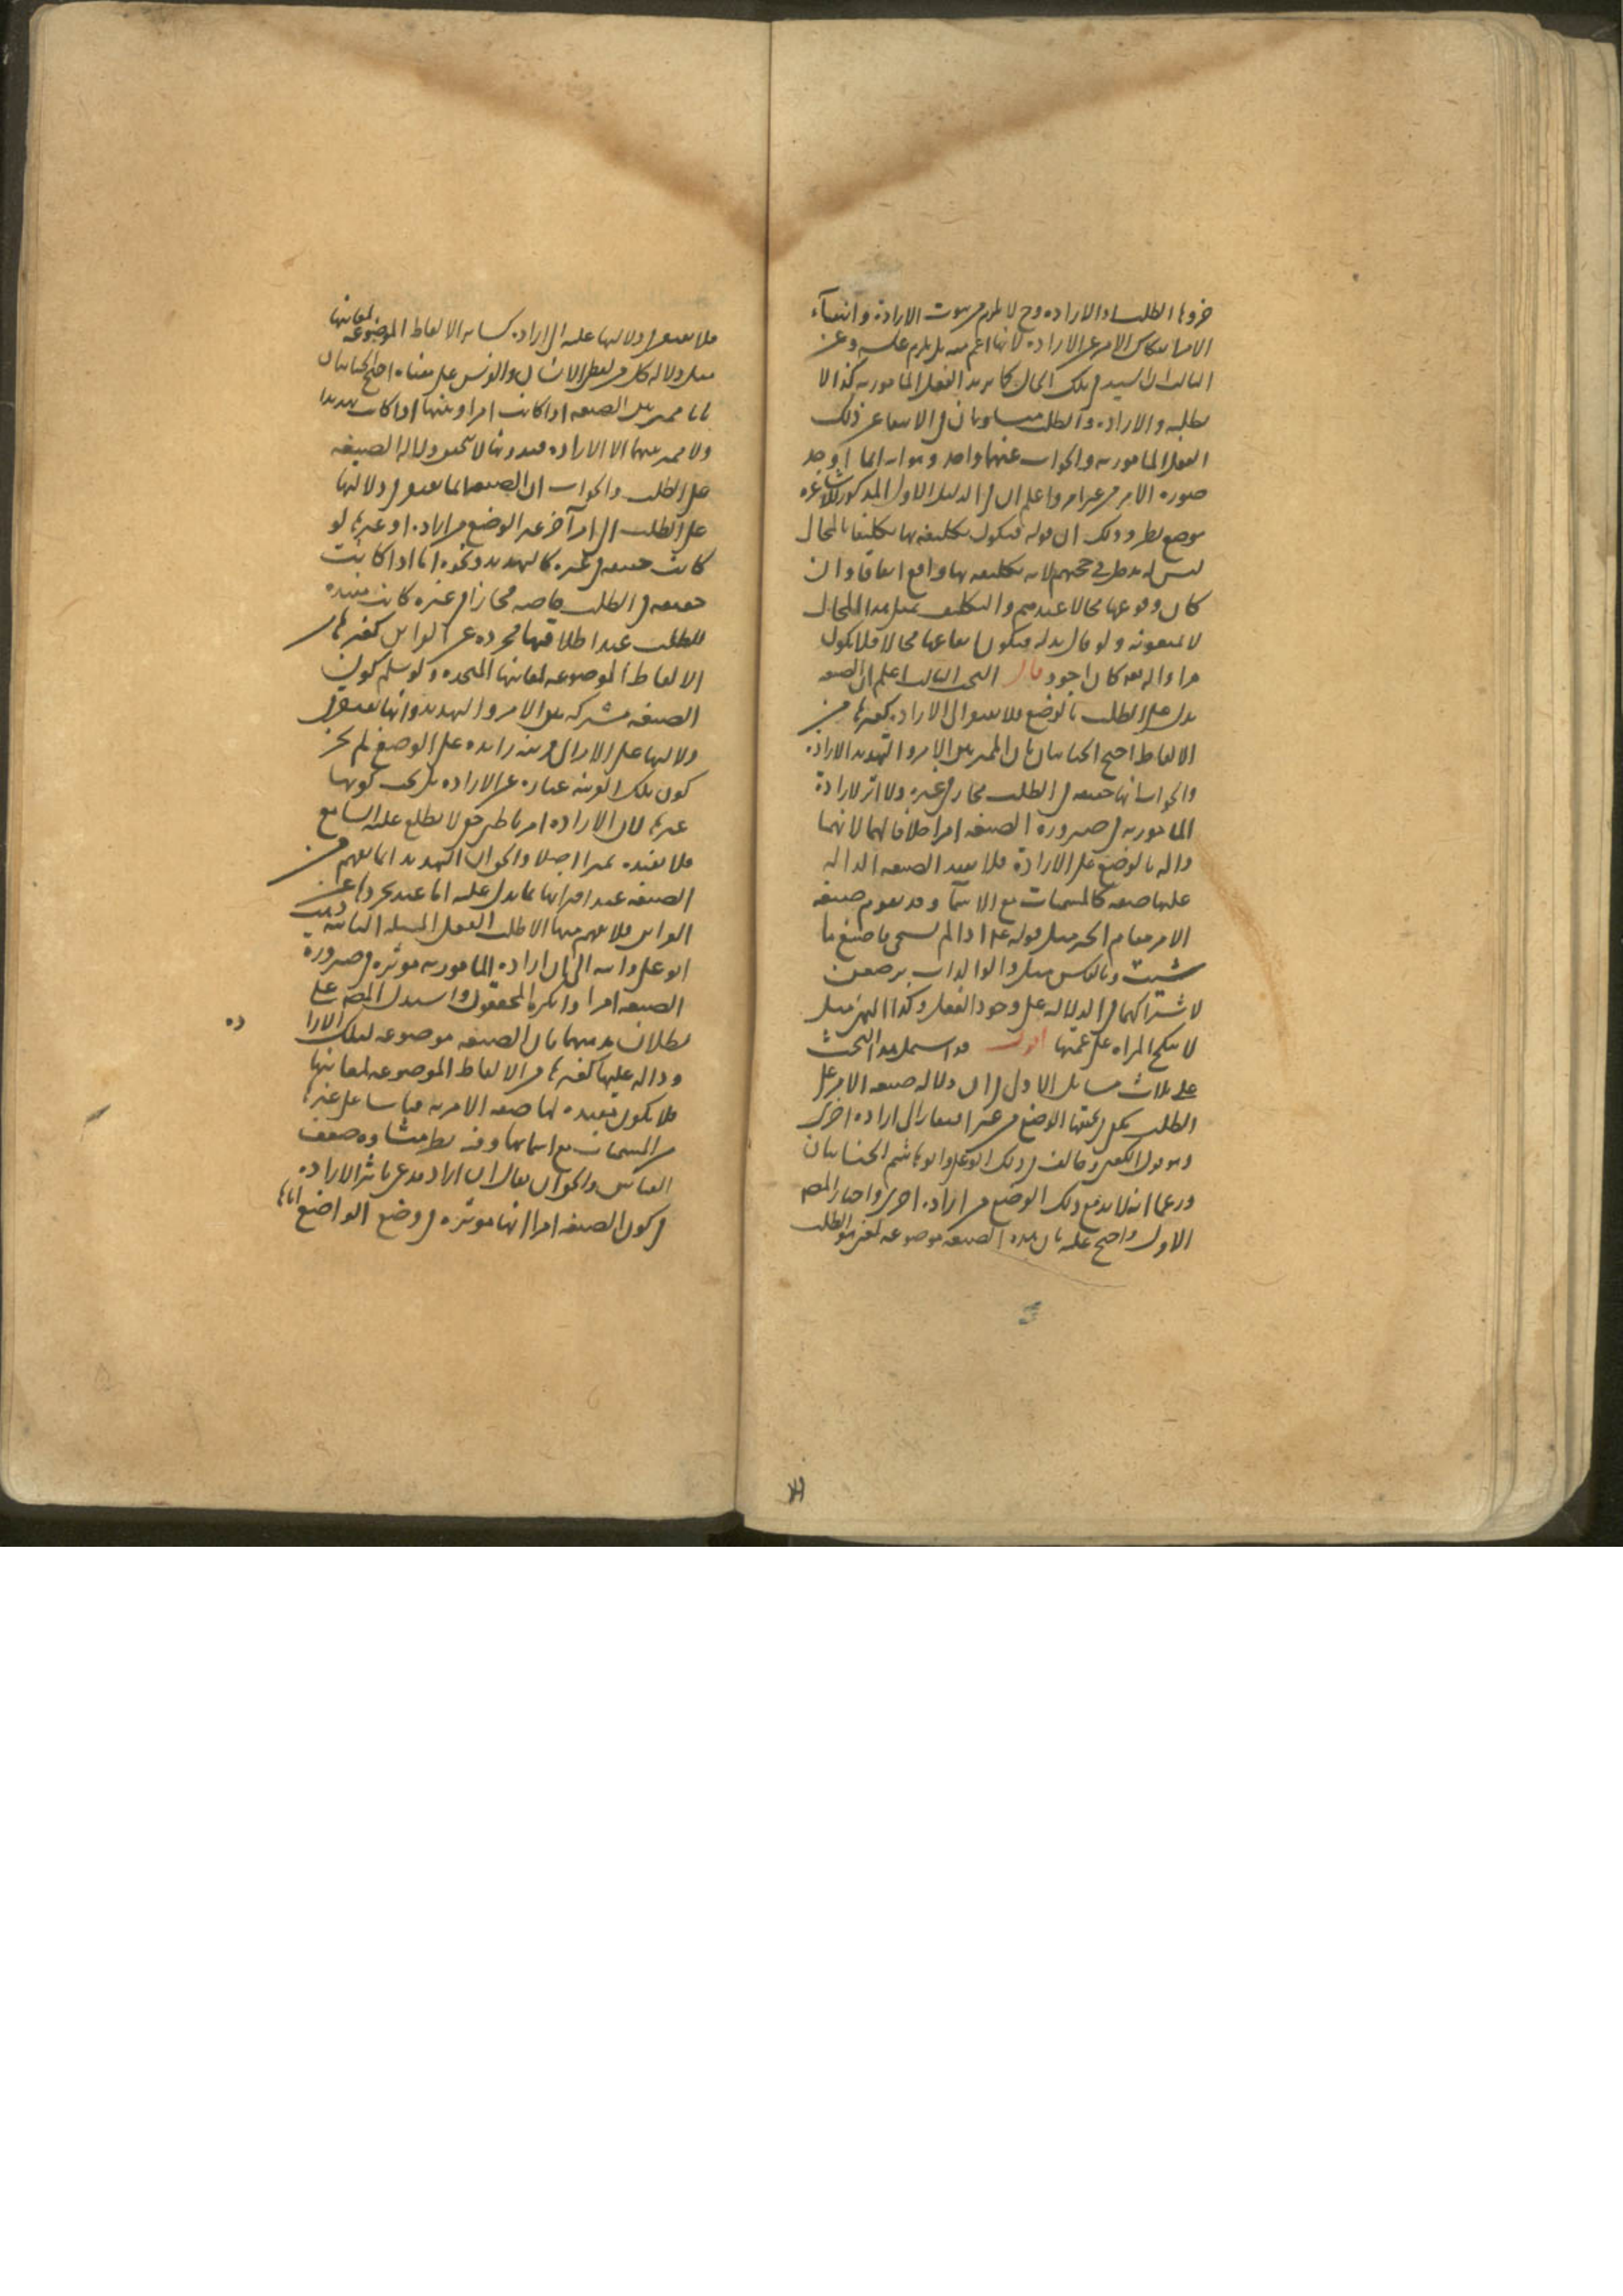 جزوها الطلب او الارادة وح لا يلزم من ثبوت الارادة وانتفاء
الامر انفكاك الامر عن الارادة لانها اعم منه بل يلزم عكسه وعن
الثالث ان السيد في تلك الحال كما لا يريد الفعل المأمور به كذا لا
يطلبه والارادة والطلب متساويان في الانتفاء عن ذلك
الفعل المأمور به والجواب عنهما واحد وهو انه انما اوجد
صورة الامر من غير امر واعلم ان في الدليل الاول المذكور للاشاعره
موضع نظر وذلك ان قوله فيكون تكليفه بها تكليفا بالمحال
ليس له مدخل في حجتهم لانه تكليفه بها واقع اتفاقا وان
كان وقوعها محالا عندهم والتكليف بمثل هذا المحال
لا يمنعونه ولو قال بدله فيكون ايقاعها محالا فلا يكون
مرادا لله تعه كان اجود قال البحث الثالث اعلم ان الصيغه
تدل على الطلب بالوضع فلا يفتقر الى الارادة كغيرها من
الالفاظ احتج الجبائيان بان المميز بين الامر والتهديد الارادة
والجواب انها حقيقه في الطلب مجاز في غيره ولا اثر لارادة
المأمور به في صيرورة الصيغه امرا خلافا لهما لانهما
دالة بالوضع على الارادة فلا يفيد الصيغه الداله
عليها صفه كالمسميات مع الاسماء وقد يقوم صيغه
الامر مقام الخبر مثل قوله عم اذا لم تستحي فاصنع ما
شئت وبالعكس مثل والوالدات يرضعن
لاشتراكهما في الدلاله على وجود الفعل وكذا النهي مثل
لا تنكح المراه على عمتها اقول قد اشتمل هذا البحث
على ثلاث مسائل الاولى في ان دلاله صيغه الامر على
الطلب يكفي في تحققها الوضع من غير افتقار الى ارادة اخرى
وهو قول الكعبي وخالف في ذلك ابو علي وابو هاشم الجبائيان
وزعما انه لا بد مع ذلك الوضع من ارادة اخرى واختار المصـ
الاول واحتج عليه بان هذه الصيغه موضوعه لمعنى هو الطلب
فلا يفتقر في دلالتها عليه الى ارادة كسائر الالفاظ الموضوعه لمعانيها
مثل دلاله كل من لفظ الانسان والفرس على معناه احتج الجبائيان
بانا نميز بين الصيغه اذا كانت امرا وبينها اذا كانت تهديدا
ولا مميز بينهما الا الارادة فبدونها لا تتحقق دلاله الصيغه
على الطلب والجواب ان الصيغه انما تفتقر في دلالتها
على الطلب الى امر آخر غير الوضع من ارادة او غيرها لو
كانت حقيقه في غيره كالتهديد ونحوه اما اذا كانت
حقيقه في الطلب خاصه مجازا في غيره كانت مفيدة
للطلب عند اطلاقها مجرده عن القرائن كغيرها من
الالفاظ الموضوعه لمعانيها المتحده ولو سلم كون
الصيغه مشتركه بين الامر والتهديد وانها تفتقر في
دلالتها على الامر الى قرينه زايده على الوضع لم يجز
كون تلك القرينه عبارة عن الارادة بل يجب كونها
غيرها لان الارادة امر باطن خفي لا يطلع عليه السامع
فلا يفيده تميزا اصلا والجواب التهديد انما يفهم من
الصيغه عند اقترانها بما يدل عليه اما عند تجردها عن
القرائن فلا يفهم منها الا طلب الفعل المسله الثانيه ذهب
ابو علي وابنه الى ان ارادة المأمور به موثره في صيرورة
الصيغه امرا وانكره المحققون واستدل المصـ على
بطلان مذهبهما بان الصيغه موضوعه لتلك الارا
ده
ودالة عليها كغيرها من الالفاظ الموضوعه لمعانيها
فلا يكون مفيده لها صفه الامريه قياسا على غيرها
من المسميات مع اسمائها وفيه نظر منشاؤه ضعف
القياس والجواب يقال ان اراد مدعي تاثير الارادة
في كون الصيغه امرا انها موثرة في وضع الواضع اياها